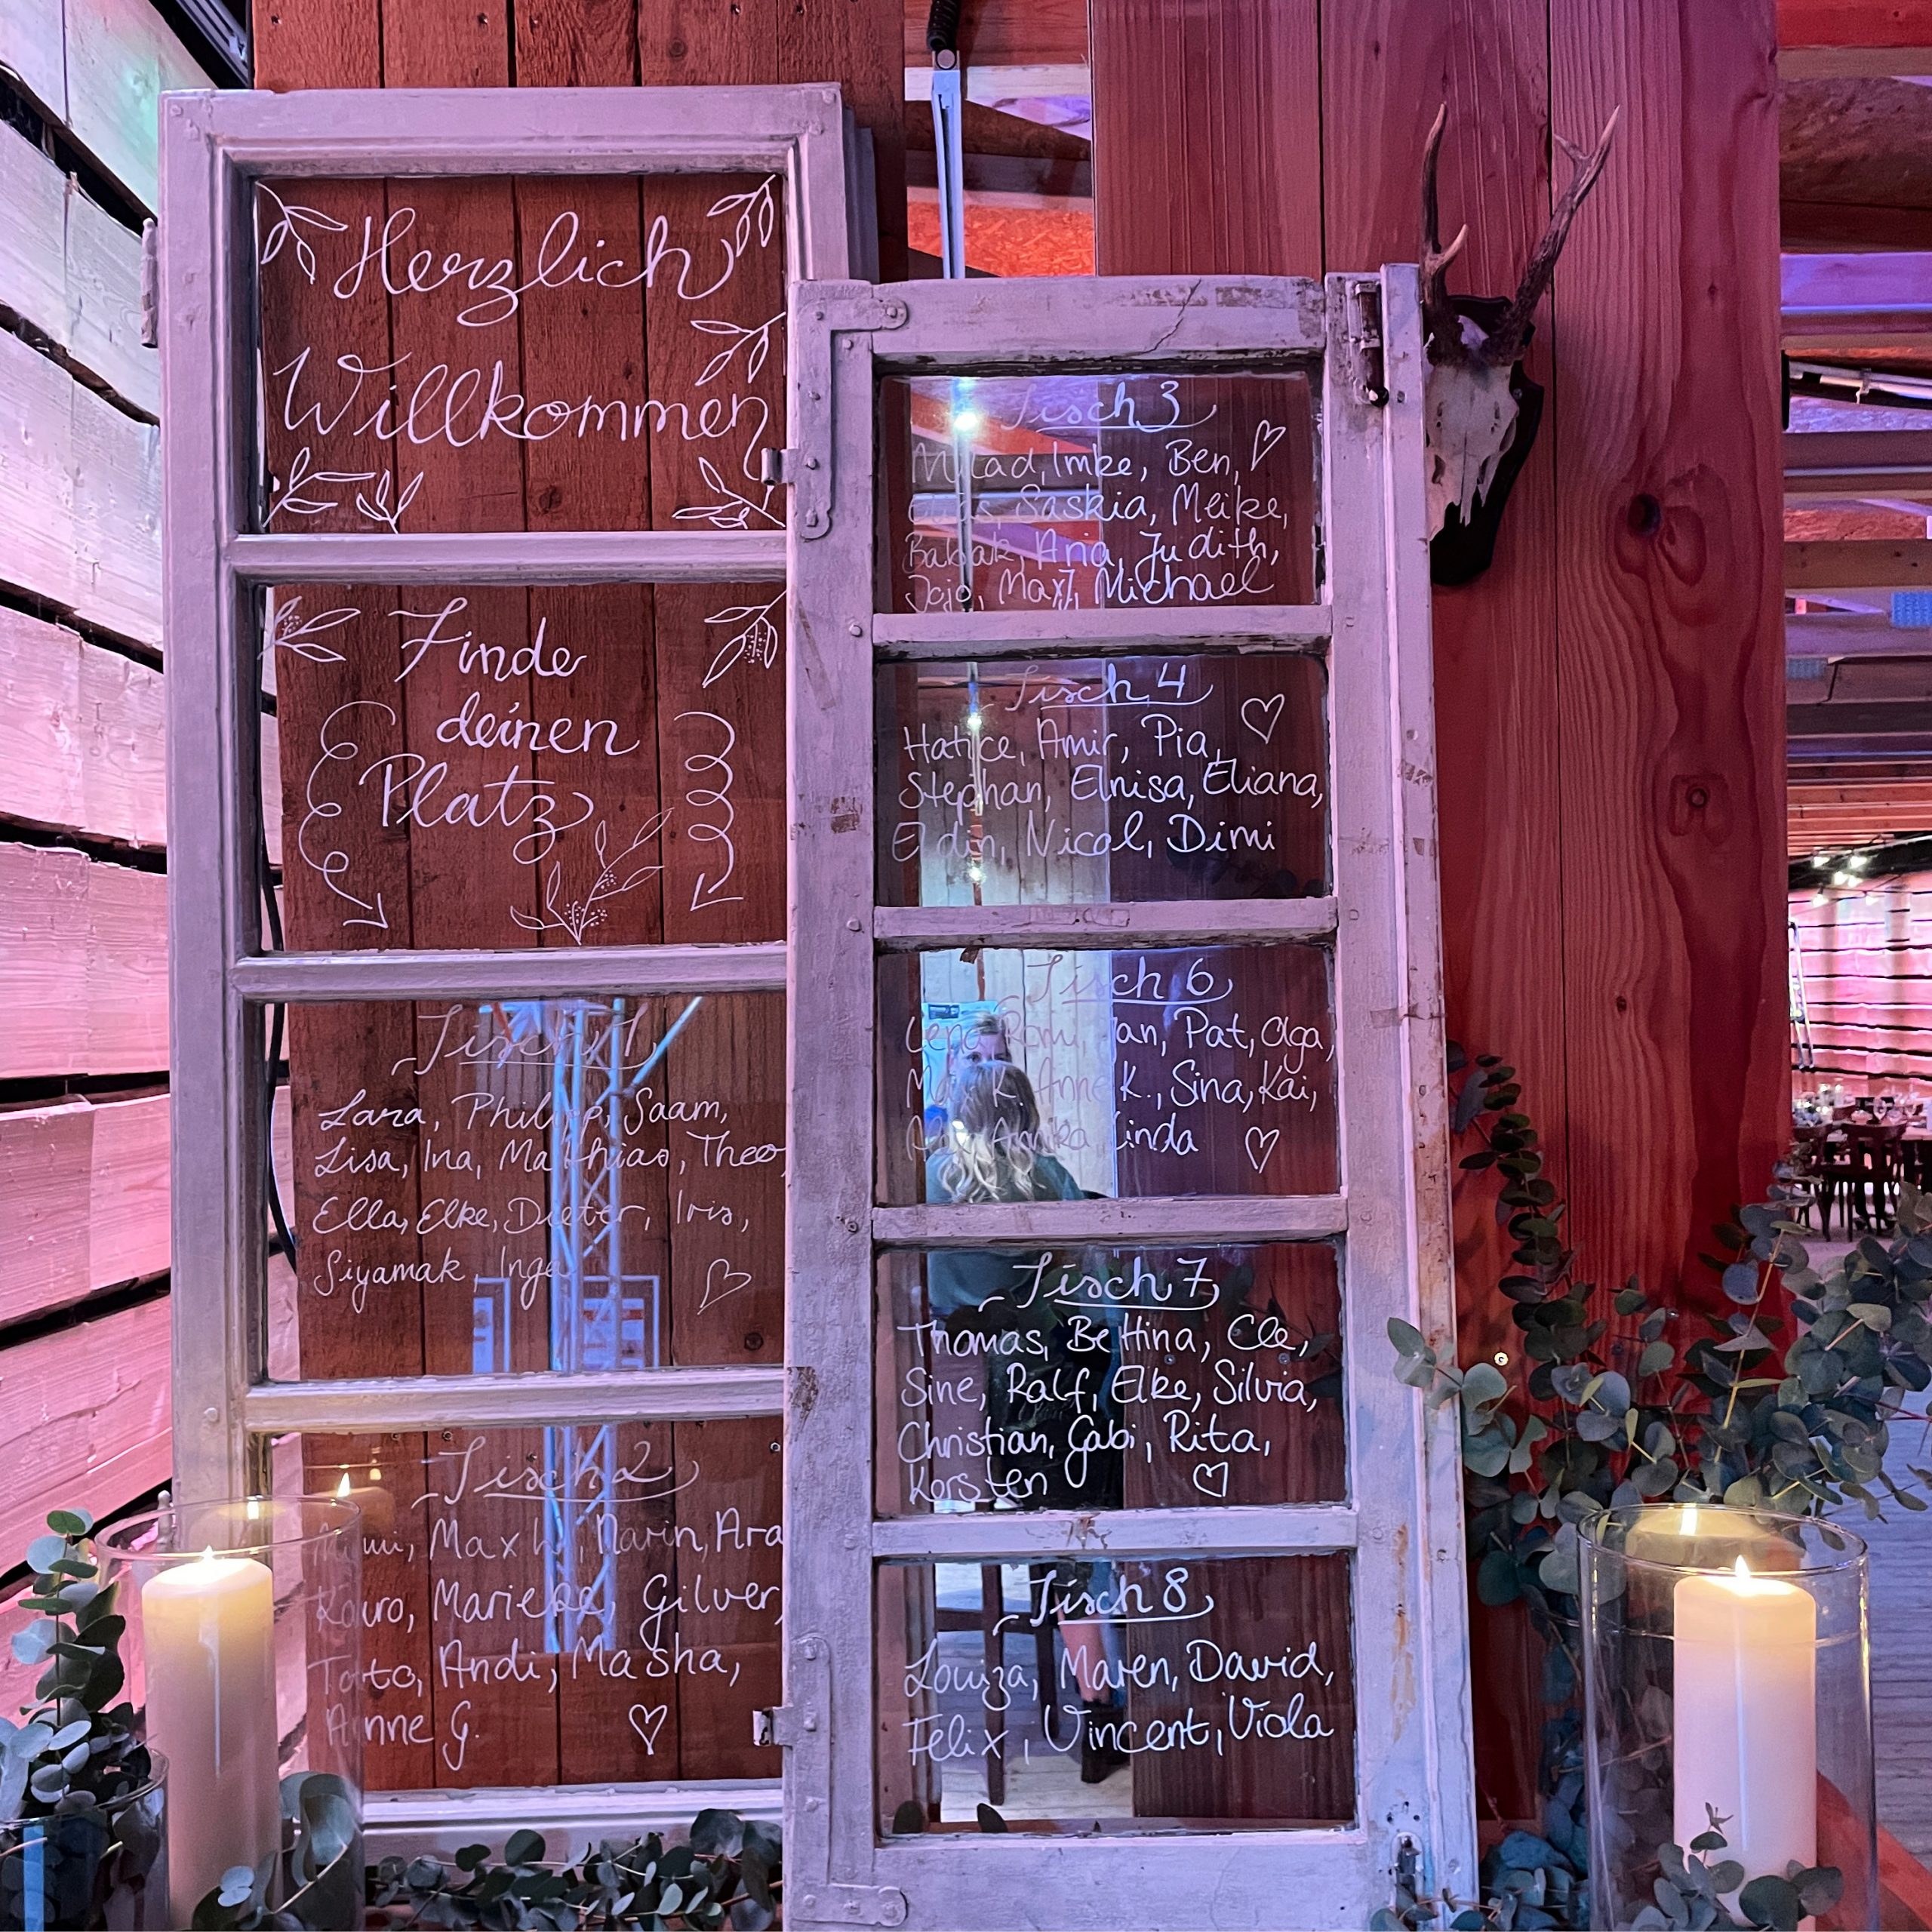 Herzlich
Willkommen
Finde
deinen
Platz
Tisch 1
Lara, Philipp, Saam,
Lisa, Ina, Matthias, Theo,
Ella, Elke, Dieter, Iris,
Siyamak, Inge
Tisch 2
Max H., Narin, Ara
Marieke, Gilver,
Andi, Masha,
Anne G.
Tisch 3
Milad, Imke, Ben,
Saskia, Meike,
Babak, Ana, Judith,
Jojo, Max J., Michael
Tisch 4
Hatice, Amir, Pia,
Stephan, Elnisa, Eliana,
Eldin, Nicol, Dimi
Tisch 6
Lena, Romi, Jan, Pat, Olga,
Max K., Anne K., Sina, Kai,
Annika, Linda
Tisch 7
Thomas, Bettina, Cle,
Sine, Ralf, Elke, Silvia,
Christian, Gabi, Rita,
Kersten
Tisch 8
Louiza, Maren, David,
Felix, Vincent, Viola